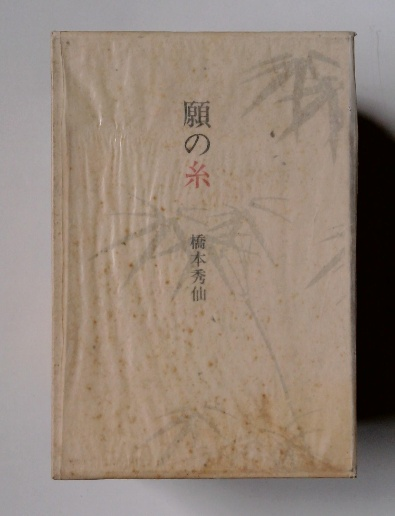 願の糸
橋本秀仙